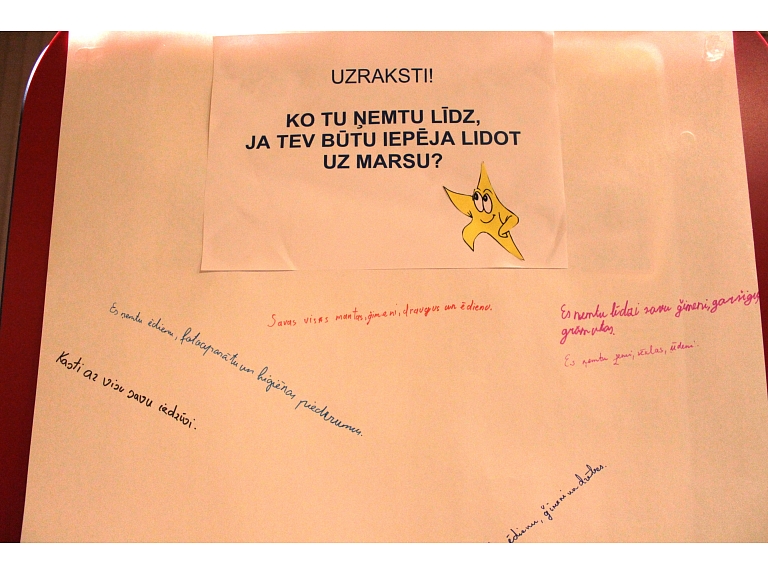 UZRAKSTI!
KO TU ŅEMTU LĪDZ,
JA TEV BŪTU IEPĒJA LIDOT
UZ MARSU?
Es ņemtu ēdienu, fotoaparātu un higiēnas piederumus.
Savas visas mantas, ģimeni, draugus un ēdienu.
Es ņemtu līdzi savu ģimeni, garšīgu
grāmatas.
Es ņemtu ģimeni, vēstules, ēdienu.
Kasti az visu savu iedzīvi.
ēdienu, ģimeni un drēbes.